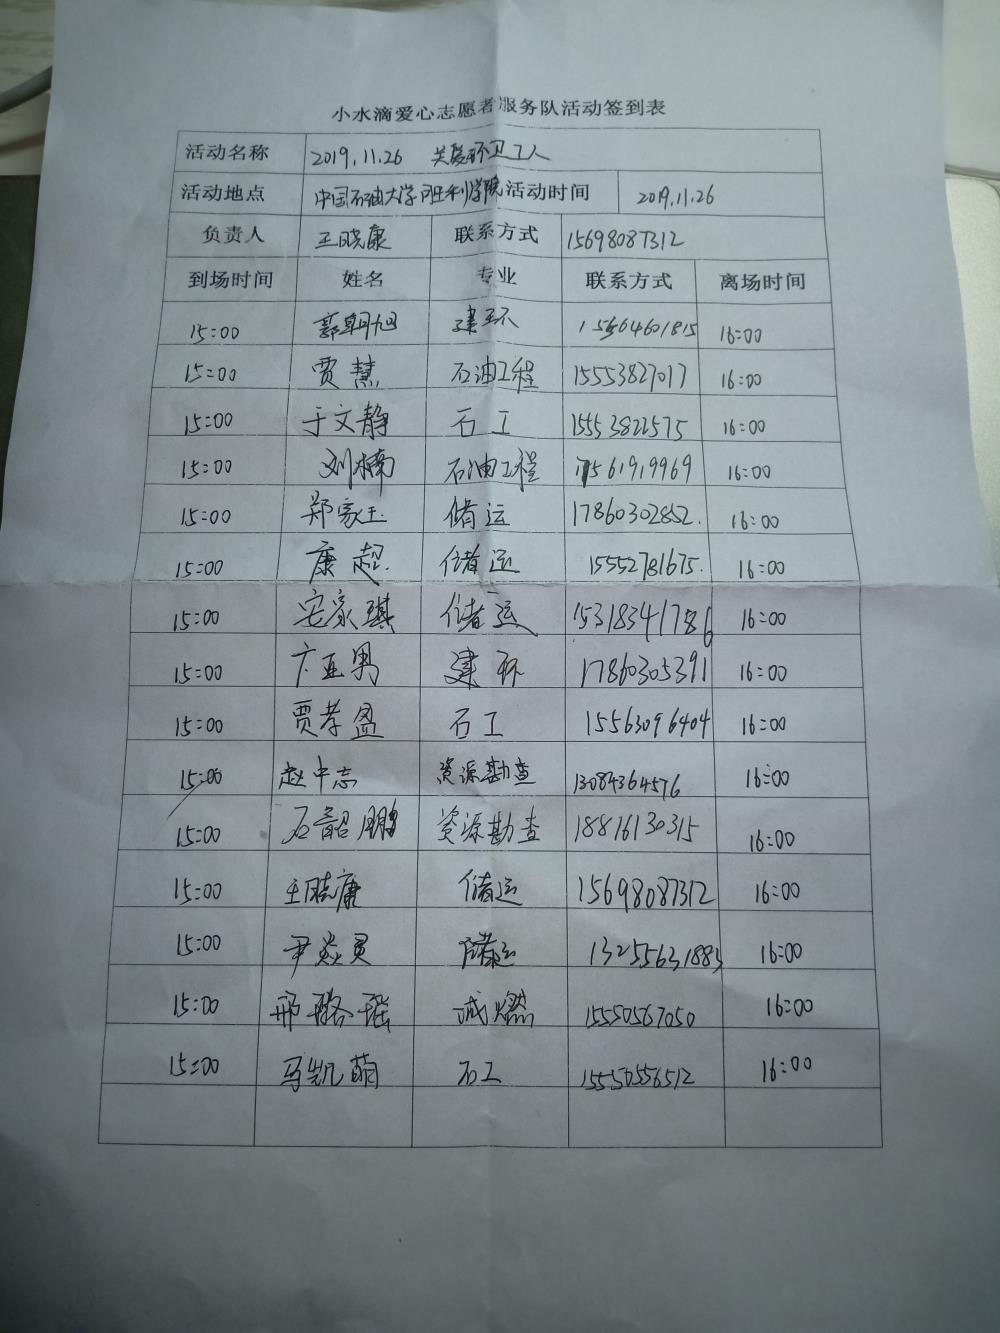 小水滴爱心志愿者服务队活动签到表
活动名称 2019.11.26 关爱环卫工人
活动地点 中国石油大学胜利学院 活动时间 2019.11.26
负责人 王晓康 联系方式 15698087312
到场时间 姓名 专业 联系方式 离场时间
15:00 郭朝旭 建环 15564601815 16:00
15:00 贾慧 石油工程 15553827017 16:00
15:00 于文静 石工 15553822575 16:00
15:00 刘楠 石油工程 17561919969 16:00
15:00 郑家玉 储运 17860302852. 16:00
15:00 康超. 储运 15552781675. 16:00
15:00 安家琪 储运 15318341786 16:00
15:00 亚男 建环 17860305391 16:00
15:00 贾孝盈 石工 15563096404 16:00
15:00 赵中志 资源勘查 13084364576 16:00
15:00 石韶鹏 资源勘查 18816130315 16:00
15:00 王晓康 储运 15698087312 16:00
15:00 尹焱 储运 13255631883 16:00
15:00 邢璐瑶 燃 15550567050 16:00
15:00 马凯萌 石工 15550556512 16:00